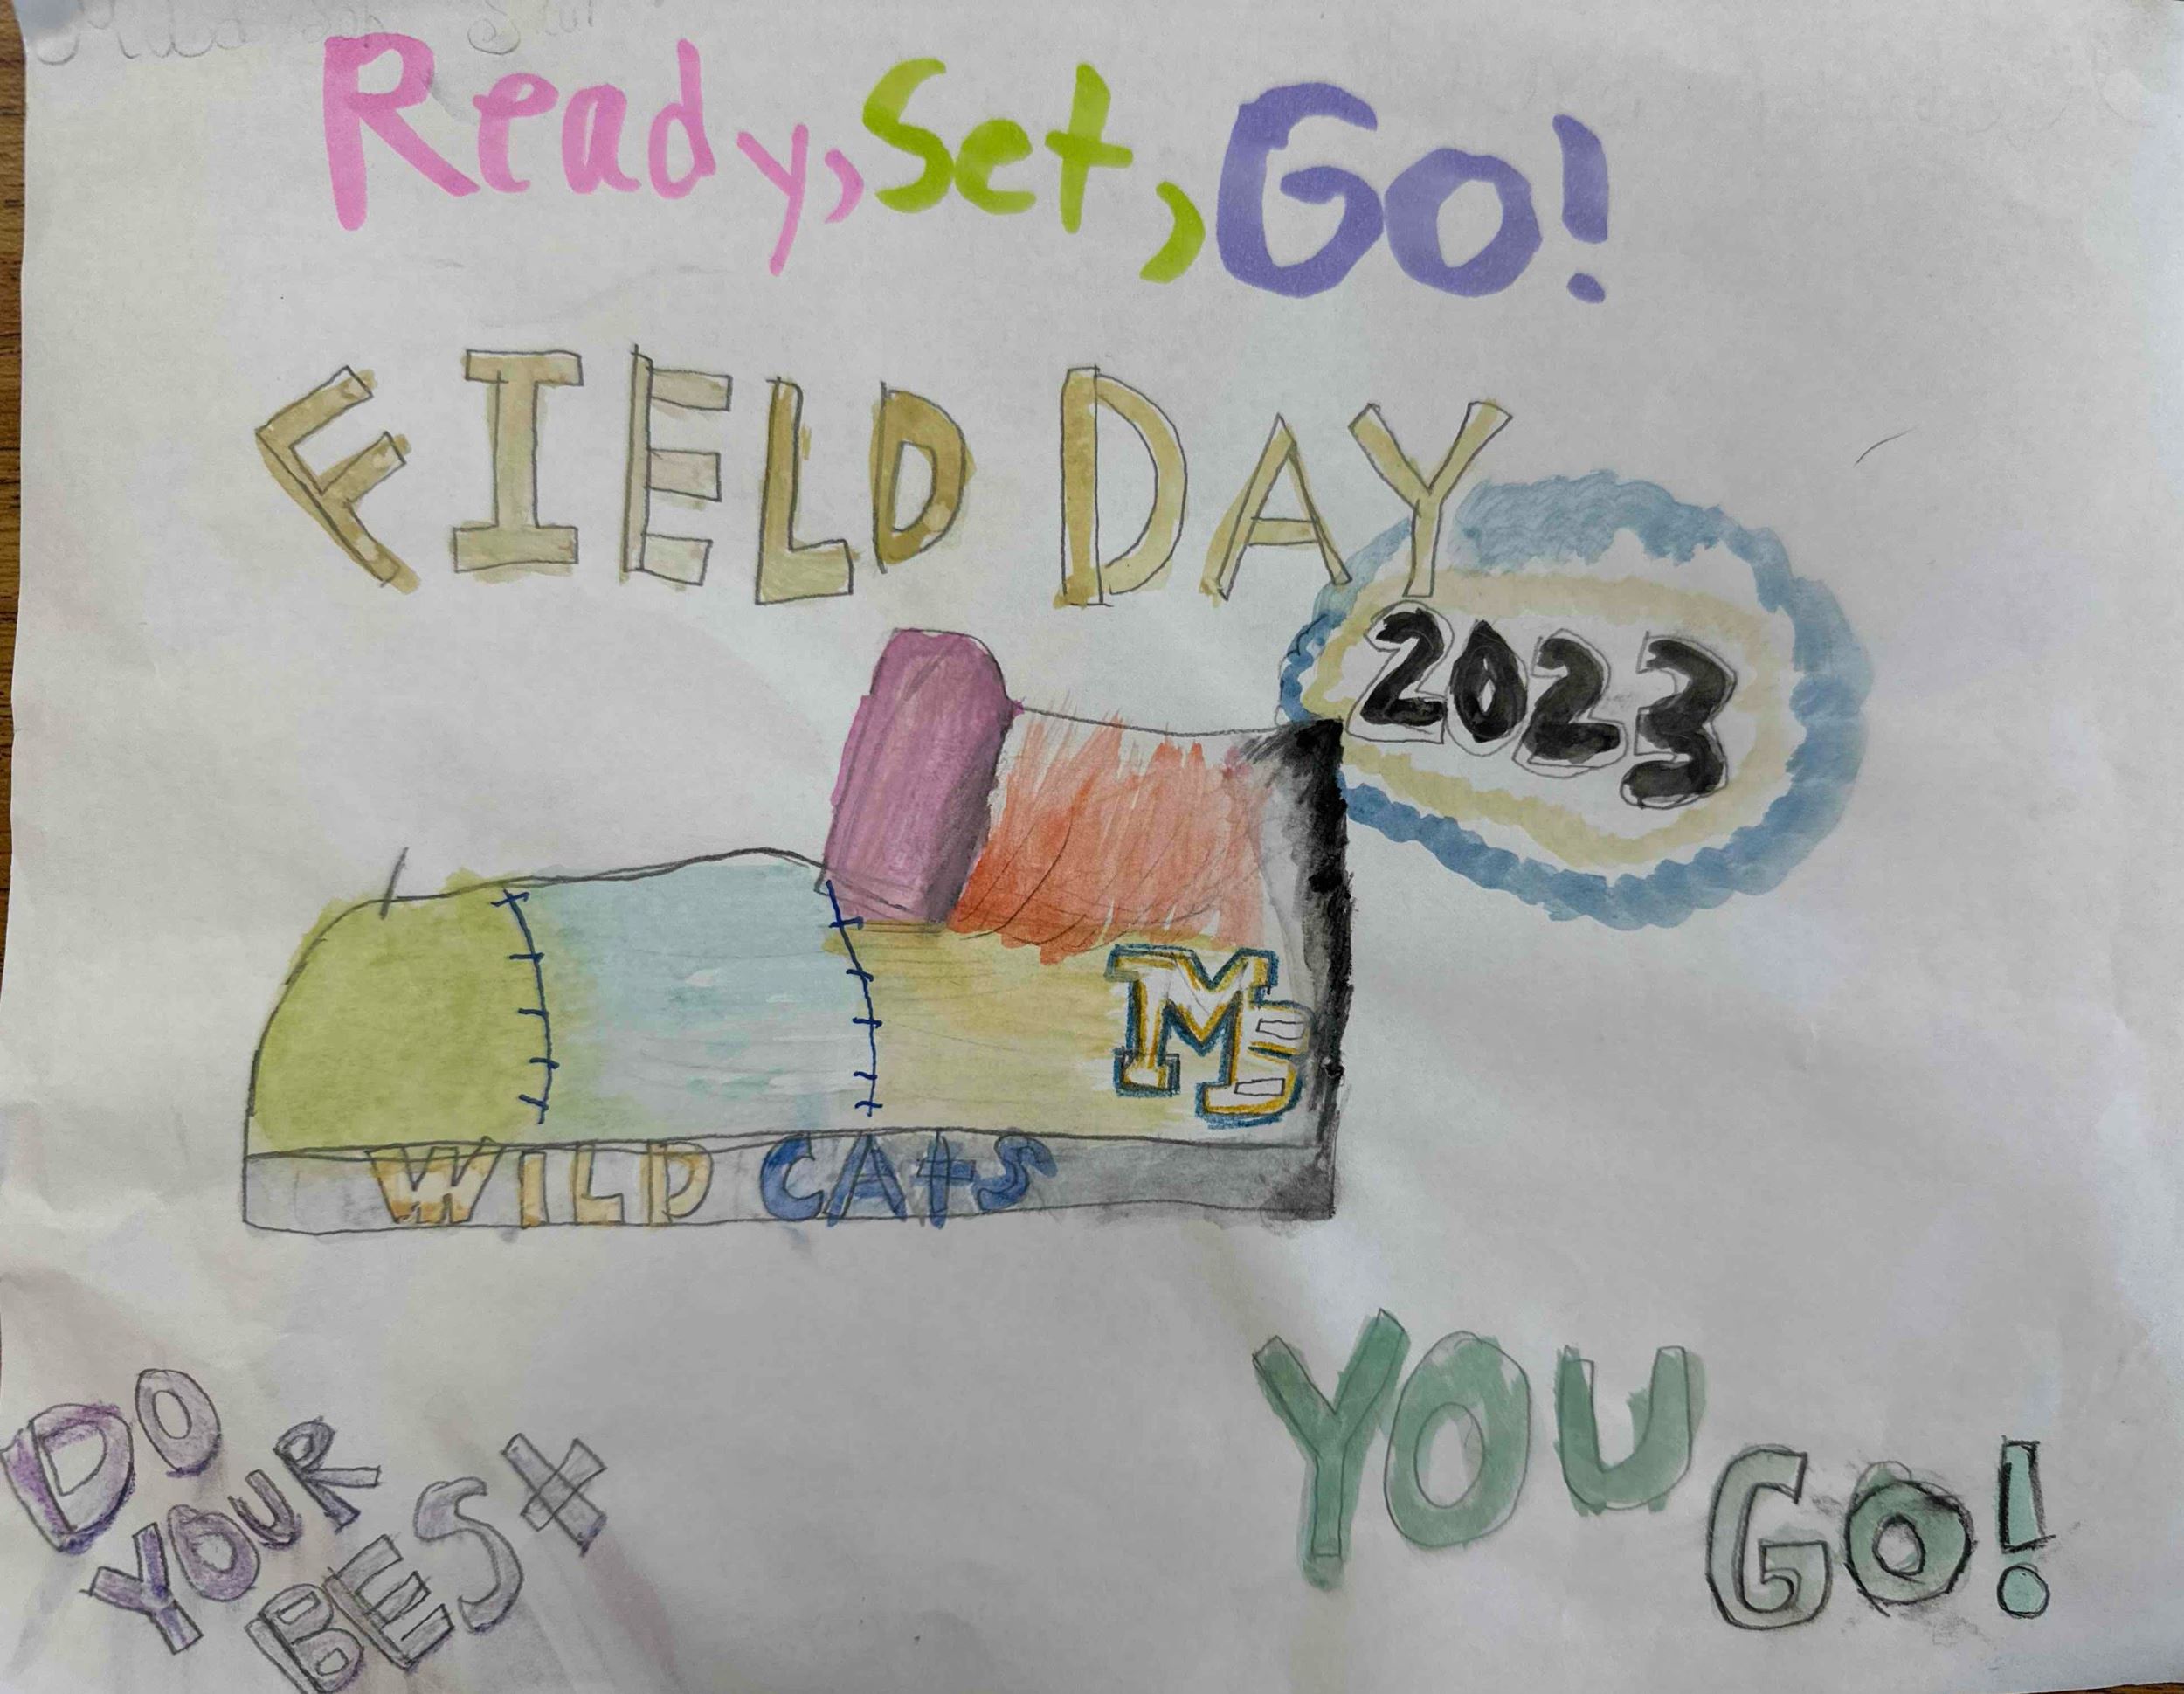 Ready, Set, Go!
FIELD DAY
2023
MS
WILD CAtS
DO
YOUR
BESt
YOU
GO!